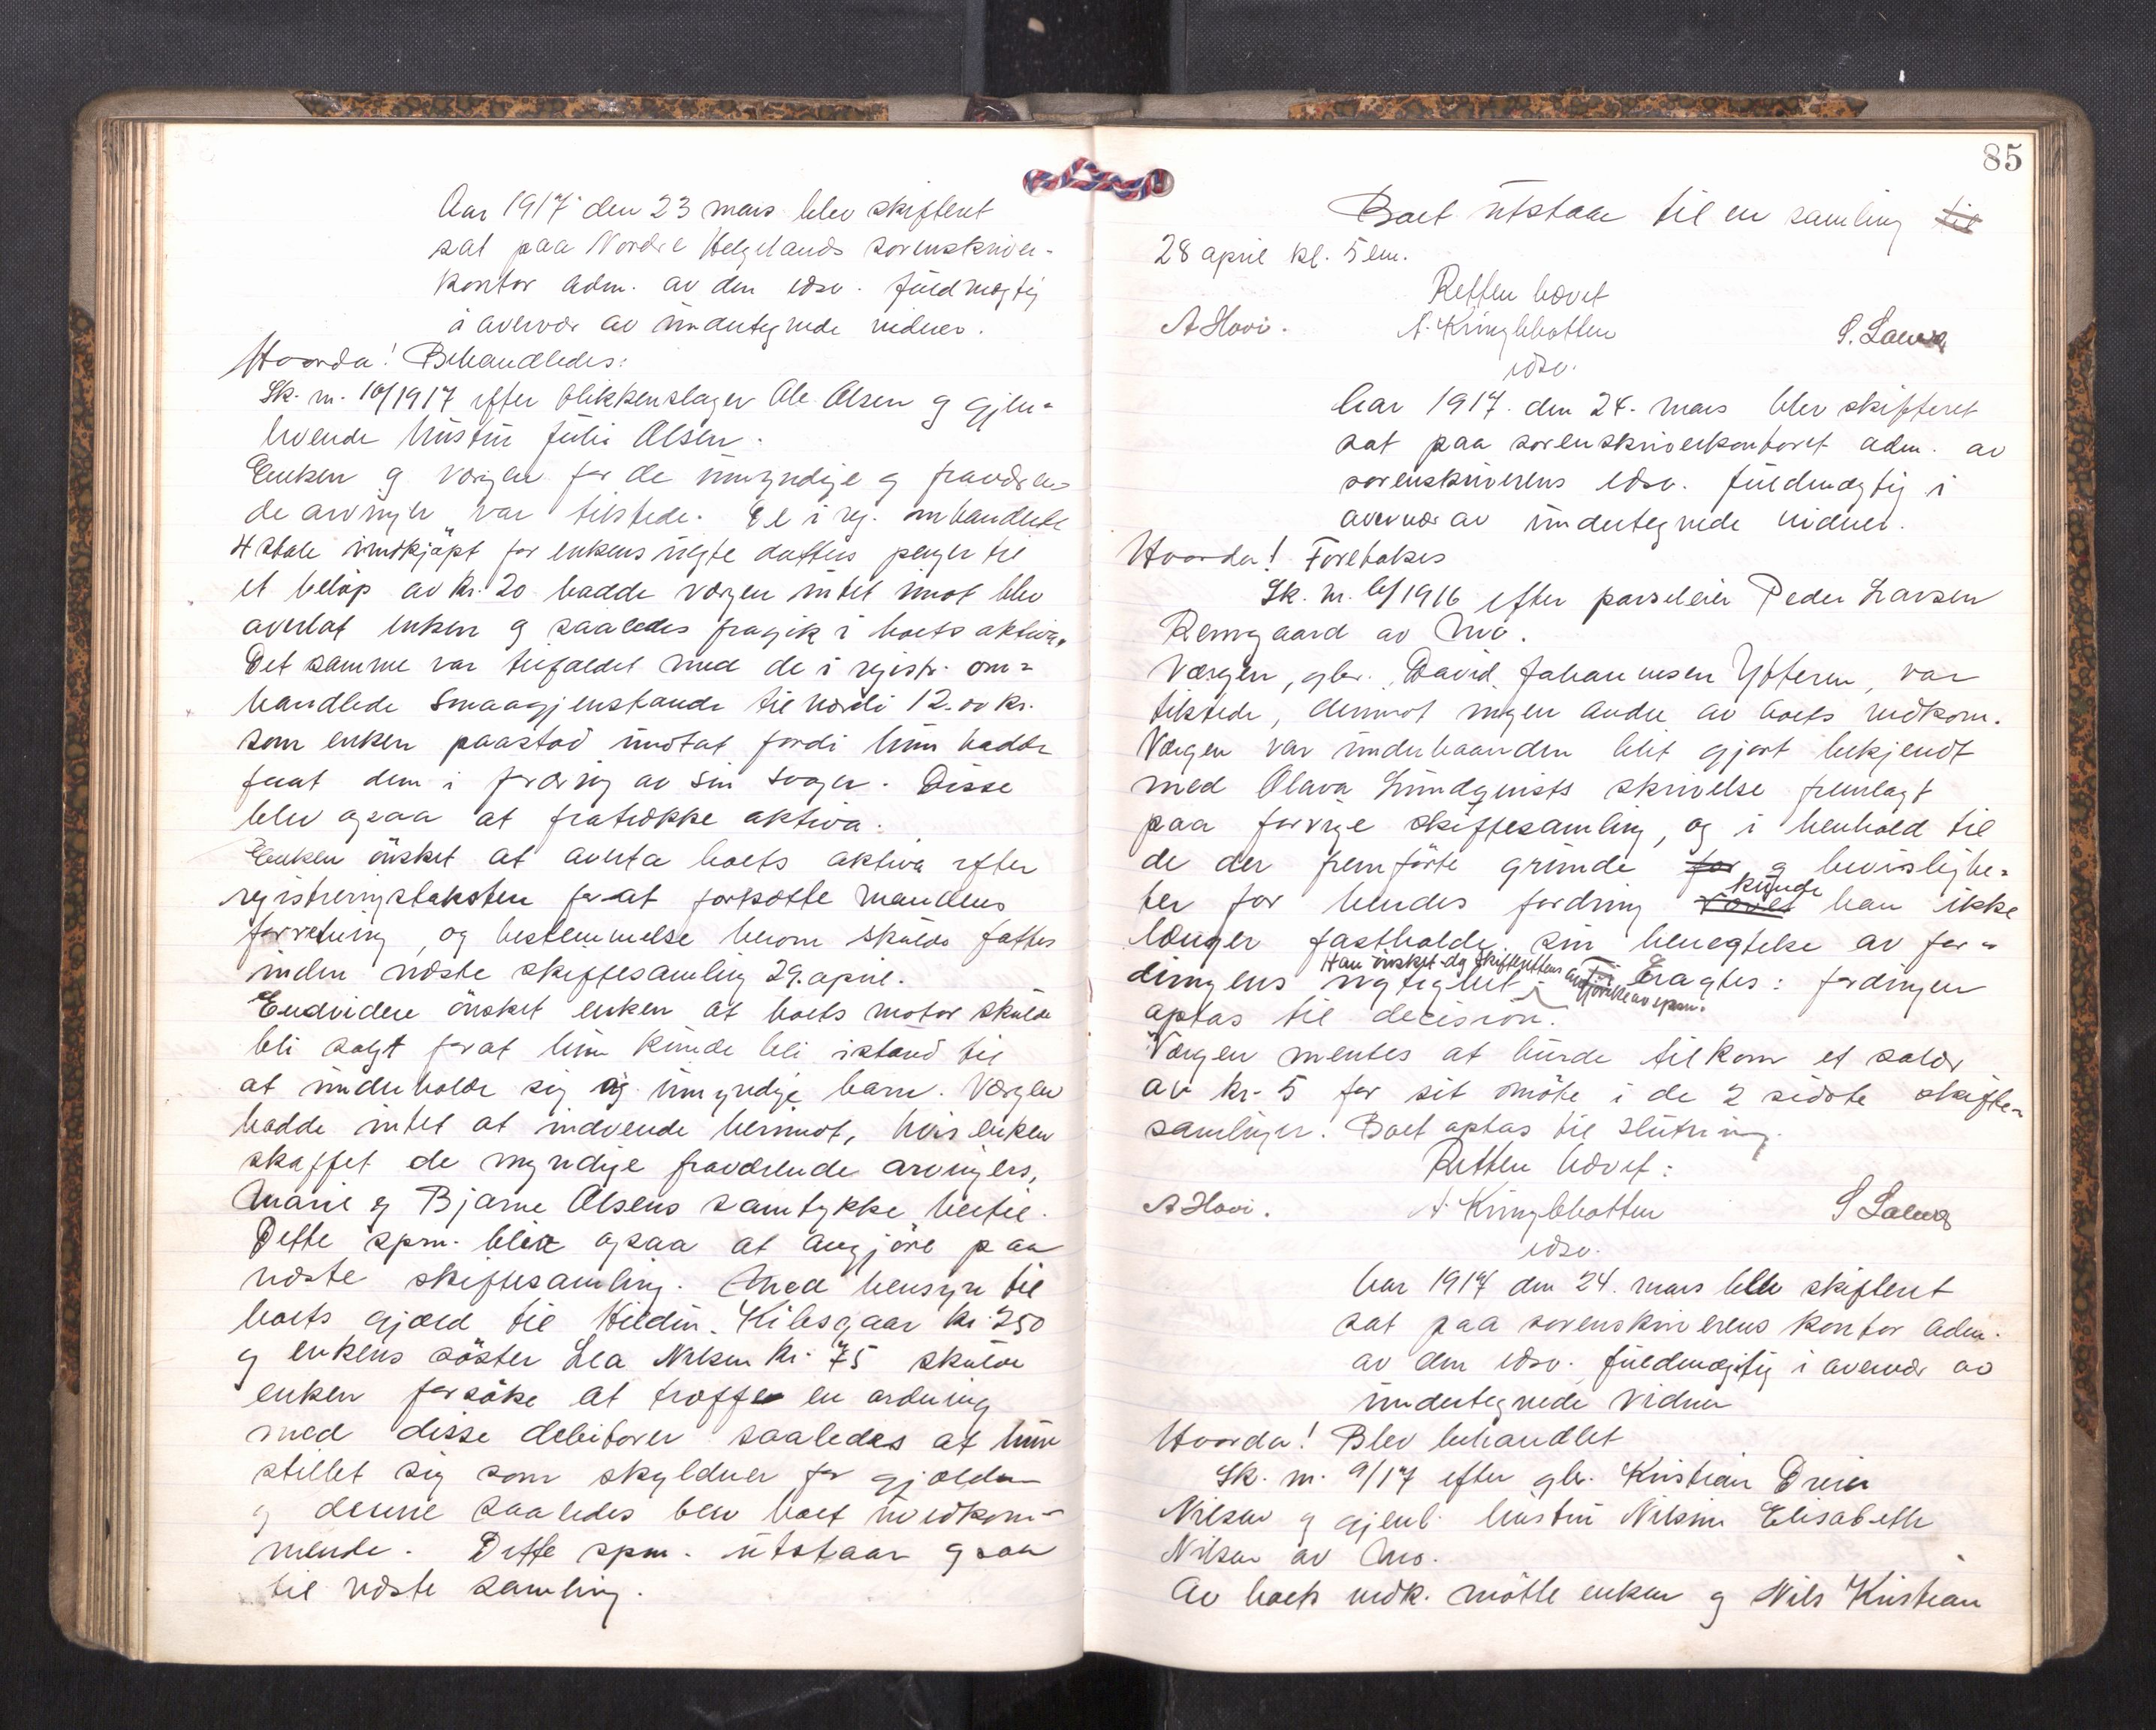 Aar 1917 den 23 mars blev skifteret
sat paa Nordre Helgelands sorenskriver-
kontor adm. av den edsv. fuldmægtig
i overvær av undertegnede vidner.
Hvorda! Behandledes:
Sk. nr. 10/1917 efter blikkenslager Ole Olsen og gjen-
levende hustru Julie Olsen.
Enken og vergen for de umyndige og fraværen-
de arvinger var tilstede. De i reg. omhandlede
4 stole indkjøpt for enkens uegte datters penger til
et beløp av kr. 20 hadde vergen intet imot blev
overlat enken og saaledes fragik i boets aktiva.
Det samme var tilfældet med de i registr. om-
handlede smaagjenstande til værdi 12.00 kr.
som enken paastod undtat fordi hun hadde
faat dem i foræring av sin svoger. Disse
blev ogsaa at fratrække aktiva.
Enken ønsket at overta boets aktiva efter
registreringstaksten for at fortsætte mandens
forretning, og bestemmelse herom skulde fattes
inden næste skiftesamling 29. april.
Endvidere ønsket enken at boets motor skulde
bli solgt forat hun kunde bli istand til
at underholde sig og umyndige barn. Vergen
hadde intet at indvende herimot, hvis enken
skaffet de myndige fraværende arvingers,
Marie og Bjarne Olsens samtykke hertil.
Dette spm. blev ogsaa at avgjøre paa
næste skiftesamling. Med hensyn til
boets gjæld til Hildin. Kilsgaar kr. 250
og enkens søster Lea Nilsen kr. 75 skulde
enken forsøke at træffe en ordning
med disse debitorer saaledes at hun
stillet sig som skyldner for gjælden
og denne saaledes blev boet uvedkom-
mende. Dette spm. utstaar ogsaa
til næste samling.
85
Boet utstaar til en samling til
28 april kl. 5 em.
Retten hævet
A Hovi. A. Kringlebotten S. Laeva
edsv.
Aar 1917. den 24. mars blev skifteret
sat paa sorenskriverkontoret adm. av
sorenskriverens edsv. fuldmægtig i
overvær av undertegnede vidner.
Hvorda! Foretokes
Sk. nr. 6/1916 efter parseleier Peder Larsen
Remgaard av Mo.
Vergen, gbr. David Johannesen Ytteren, var
tilstede, derimot ingen andre av boets vedkom.
Vergen var underhaanden blit gjort bekjendt
med Olava Lundquists skrivelse fremlagt
paa forrige skiftesamling, og i henhold til
de der fremførte grunde for og bevislighe-
kunde
ter for hendes fordring han ikke
længer fastholde sin benegtelse av for-
Han ønsket dog skifterettens avgjørelse av spm.
dringens rigtighet. Eragtes: fordringen
optas til decision.
Vergen mentes at burde tilkom et salær
av kr. 5 for sit møte i de 2 sidste skifte-
samlinger. Boet optas til slutning.
Retten hævet:
A Hovi. A. Kringlebotten S Laeva
edsv.
Aar 1917 den 24. mars blev skifteret
sat paa sorenskriverens kontor adm.
av den edsv. fuldmægtig i overvær av
undertegnede vidner
Hvorda! Blev behandlet
Sk. nr. 9/17 efter gbr. Kristian Dreier
Nilsen og gjenl. hustru Nilsine Elisabeth
Nilsen av Mo.
Av boets vedk. møtte enken og Nils Kristian